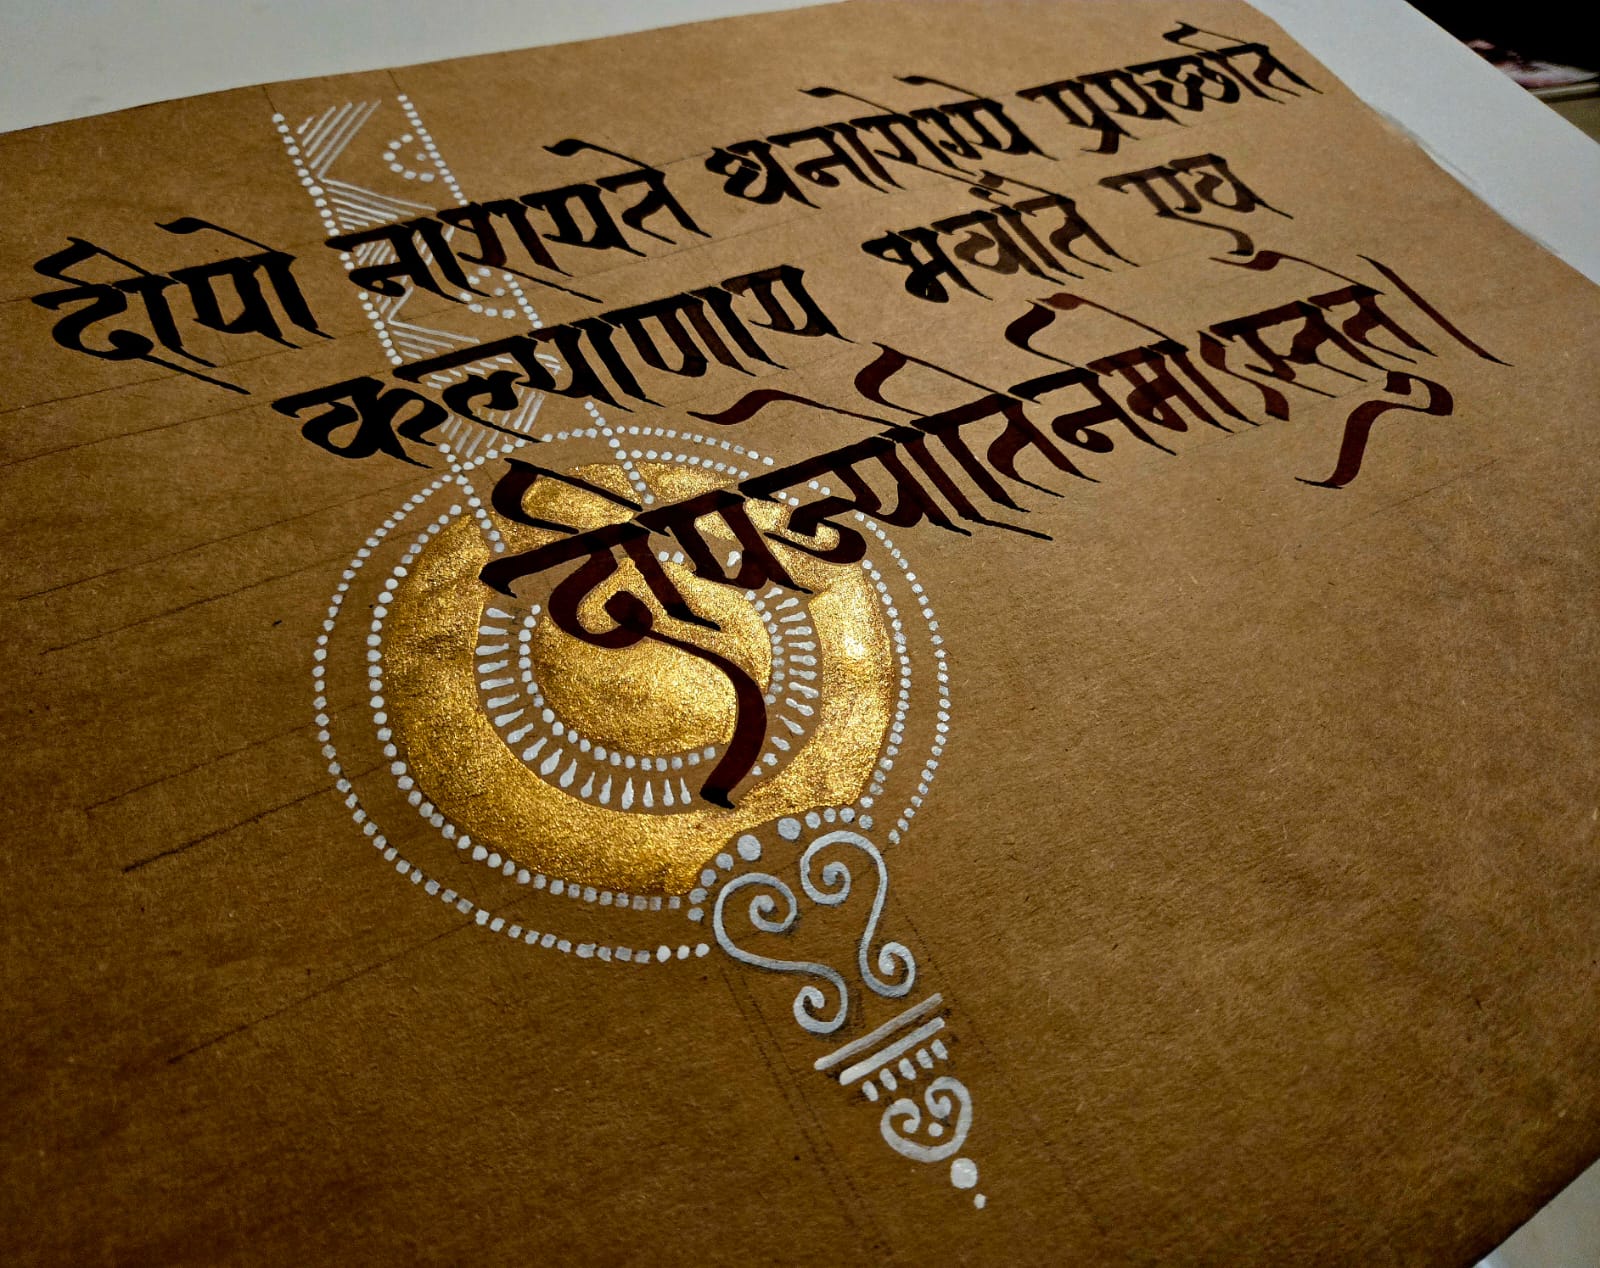 दीपो नाशयते धनारोग्ये प्रयच्छति
कल्याणाय भवति एव
दीपज्योतिर्नमोऽस्तुते।